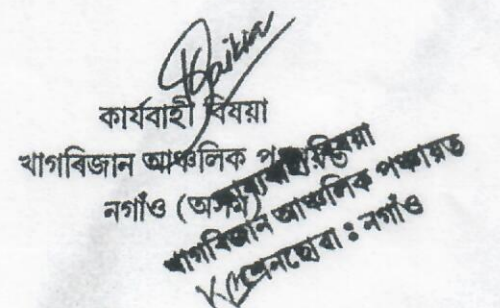 কাৰ্যবাহী বিষয়া
খাগৰিজান আঞ্চলিক পঞ্চায়ত
নগাঁও (অসম)
খাগৰিজান আঞ্চলিক পঞ্চায়ত
নগাঁও